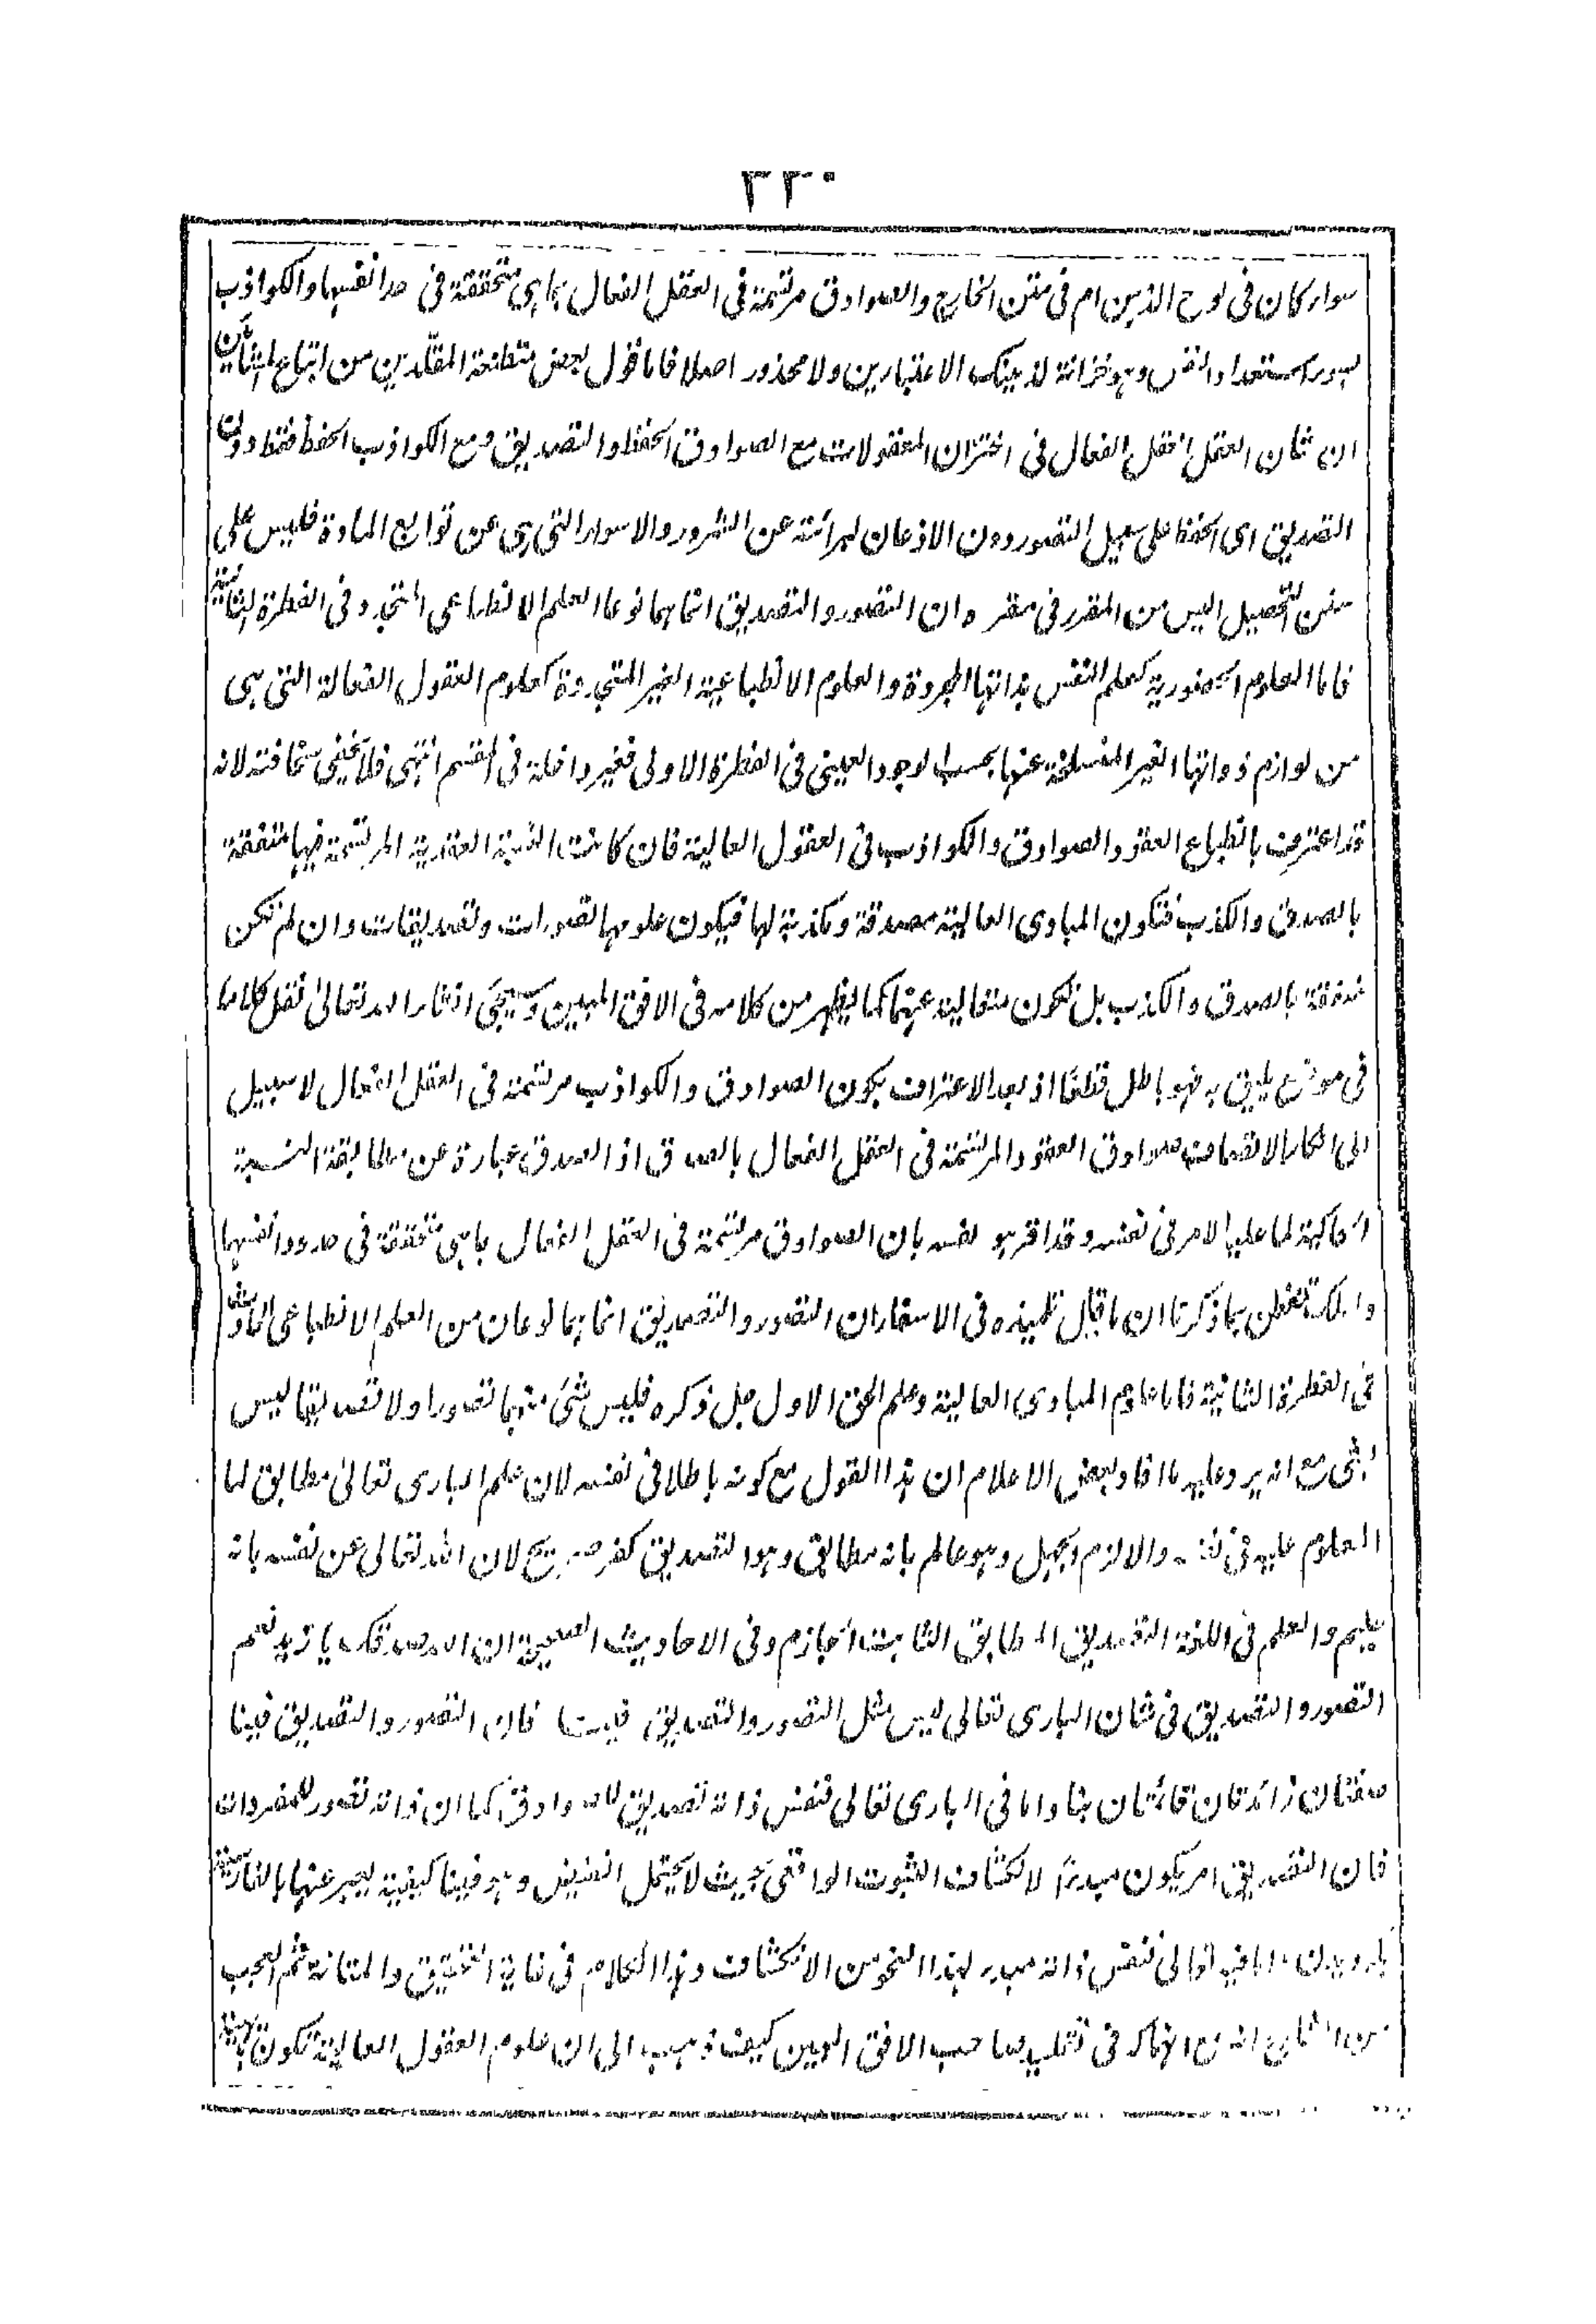 ٣٣٠
سواء كان فى لوح الذهن ام فى متن الخارج والصوادق مرتسمة فى العقل الفعال بما هى متحققة فى حد انفسها والكواذب
استعداد النفس وهو خزانة لذينك الاعتبارين ولا محذور اصلا فاما قول بعض متفلسفة المقلدين من اتباع المشائين
ان شان العقل الفعال فى اختزان المعقولات مع الصوادق الحفظ والتصديق ومع الكواذب الحفظ فقط دون
التصديق اى الحفظ على سبيل التصور دون الاذعان لبرائته عن الشرور والاسواء التى هى من توابع المادة فليس على
سنن التحصيل اليس من المقرر فى مقره ان التصور والتصديق انما هما نوعا العلم الانطباعى المتجدد فى الفطرة الثانية
فاما العلوم الحضورية كعلم النفس بذاتها المجردة والعلوم الانطباعية الغير المتجددة كعلوم العقول الفعالة التى هى
من لوازم ذواتها الغير المنسلخة عنها بحسب الوجود العينى فى الفطرة الاولى فغير داخلة فى المقسم انتهى فلا يخفى سخافته لانه
قد اعترف بانطباع العقود الصوادق والكواذب فى العقول العالية فان كانت النسبة العقدية المرتسمة فيها متصفة
بالصدق والكذب فتكون المبادى العالية مصدقة ومكذبة لها فيكون علومها تصورات وتصديقات وان لم تكن
متصفة بالصدق والكذب بل تكون متعالية عنهما كما يظهر من كلامه فى الافق المبين وسيجئ انشاء الله تعالىٰ نقل كلامه
فى موضع يليق به فهو باطل قطعًا اذ بعد الاعتراف بكون الصوادق والكواذب مرتسمة فى العقل الفعال لا سبيل
الى انكار الاتصاف صوادق العقود المرتسمة فى العقل الفعال بالصدق اذ الصدق عبارة عن مطابقة النسبة
الحاكية لما عليه الامر فى نفسه وقد اقر هو نفسه بان الصوادق مرتسمة فى العقل الفعال بما هى متحققة فى حدود انفسها
ولعلك تتفطن بما ذكرنا ان ما قال تلميذه فى الاسفار ان التصور والتصديق انما هما نوعان من العلم الانطباعى الحادث
فى الفطرة الثانية فاما علوم المبادى العالية وعلم الحق الاول جل ذكره فليس شئ منهما تصورا ولا تصديقا ليس
بشئ مع انه يرد عليه ما افاد بعض الاعلام ان هذا القول مع كونه باطلا فى نفسه لان علم البارى تعالىٰ مطابق لما
المعلوم عليه فى نفسه والا لزم الجهل وهو عالم بانه مطابق وهو التصديق كفر صريح لان الله تعالى عن نفسه بانه
عليم والعلم فى اللغة التصديق المطابق الثابت الجازم وفى الاحاديث الصحيحة ان الله صدقك يا زيد نعم
التصور والتصديق فى شان البارى تعالى ليس مثل التصور والتصديق فينا فان التصور والتصديق فينا
صفتان زائدتان قائمتان بنا واما فى البارى تعالى فنفس ذاته تصديق للصوادق كما ان ذاته تصور للمفردات
فان التصديق امر يكون مبدءًا لانكشاف الثبوت الواقعى بحيث لا يحتمل النقيض وهو فينا كيفية يعبر عنها بالفارسية
بگرويدن واما فيه تعالى فنفس ذاته مبدء لهذا النحو من الانكشاف وهذا الكلام فى غاية التحقيق والمتانة ثم العجب
من الشارح انه مع انهماكه فى تقليد صاحب الافق المبين كيف ذهب الى ان علوم العقول العالية تكون